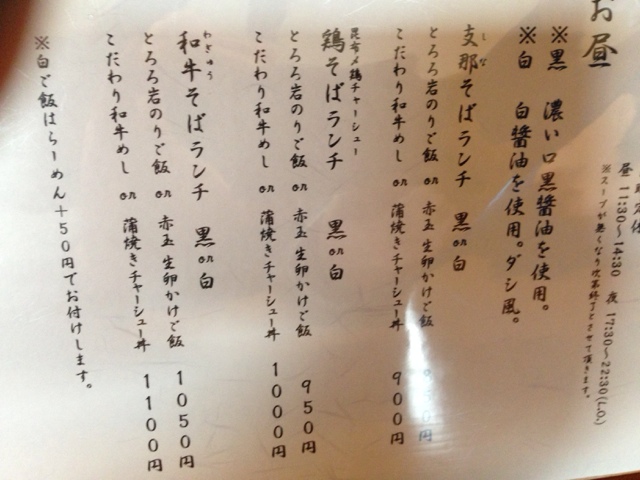 お昼
昼 11:30〜14:30 夜 17:30〜22:30(L.O.)
※スープが無くなり次第終了とさせて頂きます。
※黒 濃い口黒醤油を使用。
※白 白醤油を使用。ダシ風。
支那そばランチ 黒or白
しな
とろろ岩のりご飯 or 赤玉生卵かけご飯
こだわり和牛めし or 蒲焼きチャーシュー丼 900円
昆布〆鶏チャーシュー
鶏そばランチ 黒or白
とろろ岩のりご飯 or 赤玉生卵かけご飯 950円
こだわり和牛めし or 蒲焼きチャーシュー丼 1000円
わぎゅう
和牛そばランチ 黒or白
とろろ岩のりご飯 or 赤玉生卵かけご飯 1050円
こだわり和牛めし or 蒲焼きチャーシュー丼 1100円
※白ご飯はらーめん+50円でお付けします。